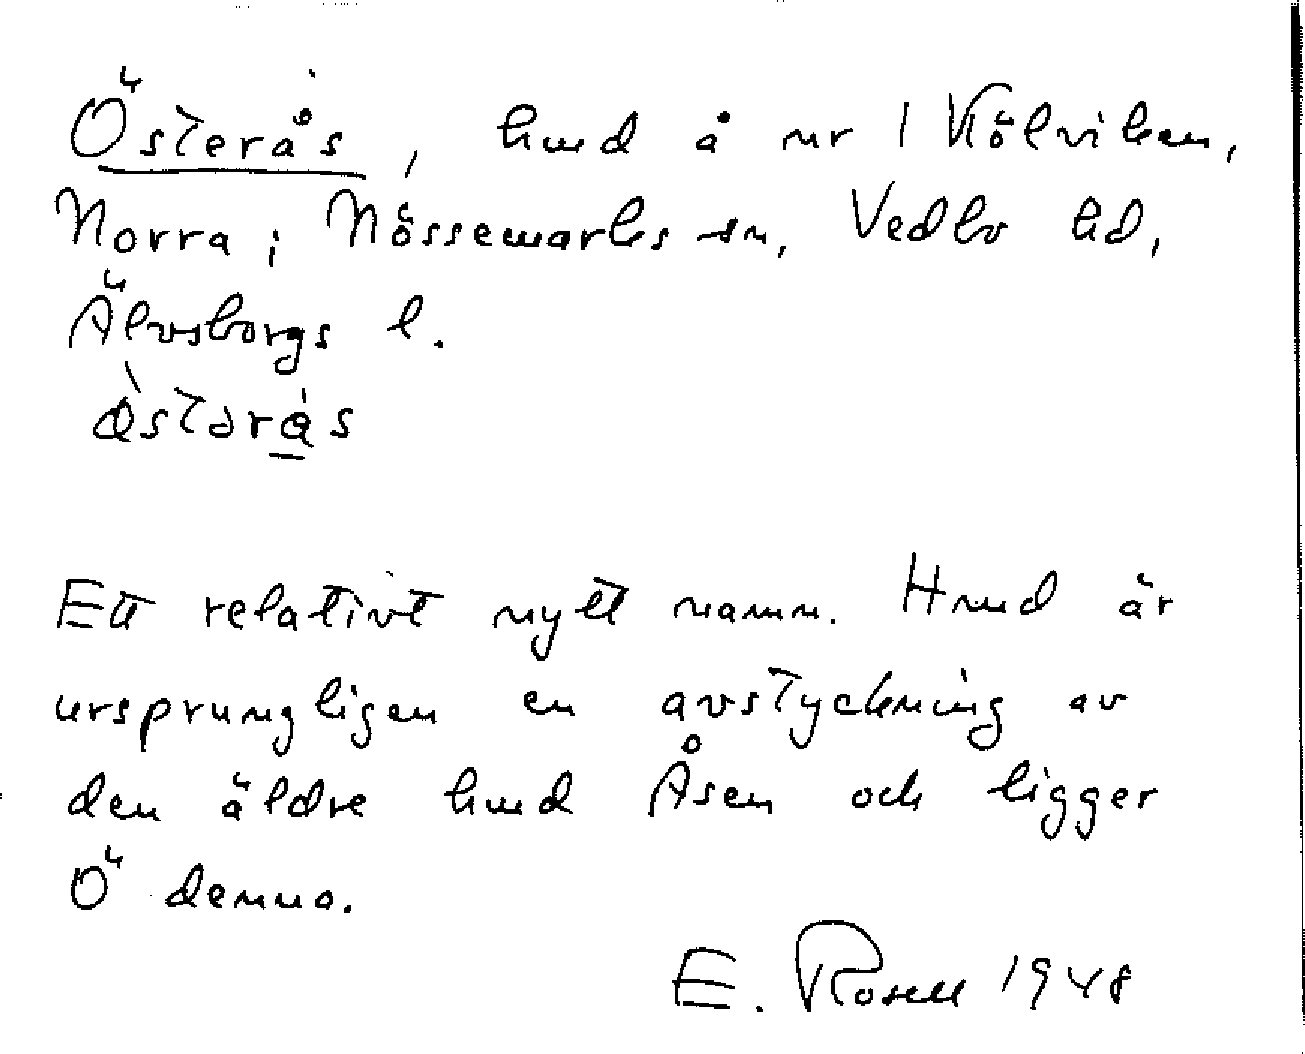 Österås, hmd å nr 1 Kölviken,
Norra i Nössemarks sn, Vedbo hd,
Älvsborgs l.
Ett relativt nytt namn. Hmd är
ursprungligen en avstyckning av
den äldre hmd Åsen och ligger
Ö denna.
E. Rosell 1948